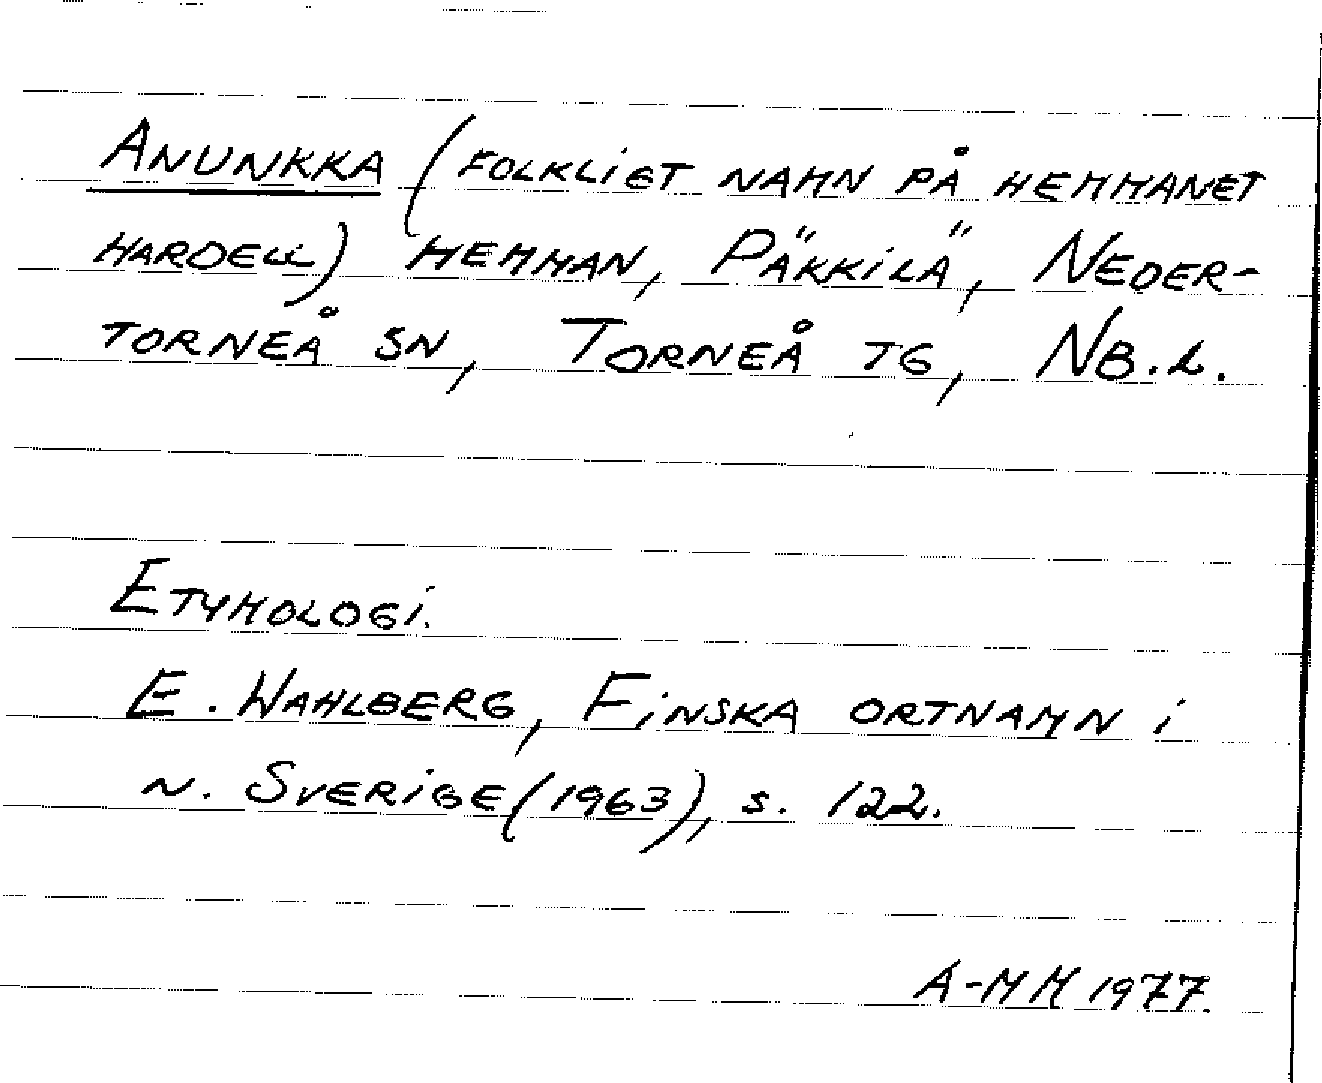 ANUNKKA (FOLKLIGT NAMN PÅ HEMMANET
HARDELL) HEMMAN, PÄKKILÄ, NEDER-
TORNEÅ SN, TORNEÅ TG, NB.L.
ETYMOLOGI.
E. WAHLBERG, FINSKA ORTNAMN i
N. SVERIGE (1963), S. 122.
A-MM 1977.